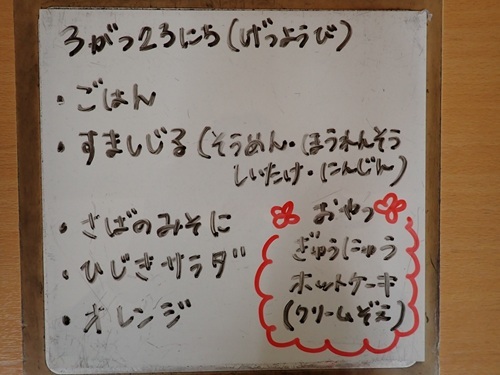 3がつ23にち(げつようび)
・ごはん
・すましじる(そうめん・ほうれんそう
しいたけ・にんじん)
・さばのみそに
・ひじきサラダ
・オレンジ
おやつ
ぎゅうにゅう
ホットケーキ
(クリームぞえ)